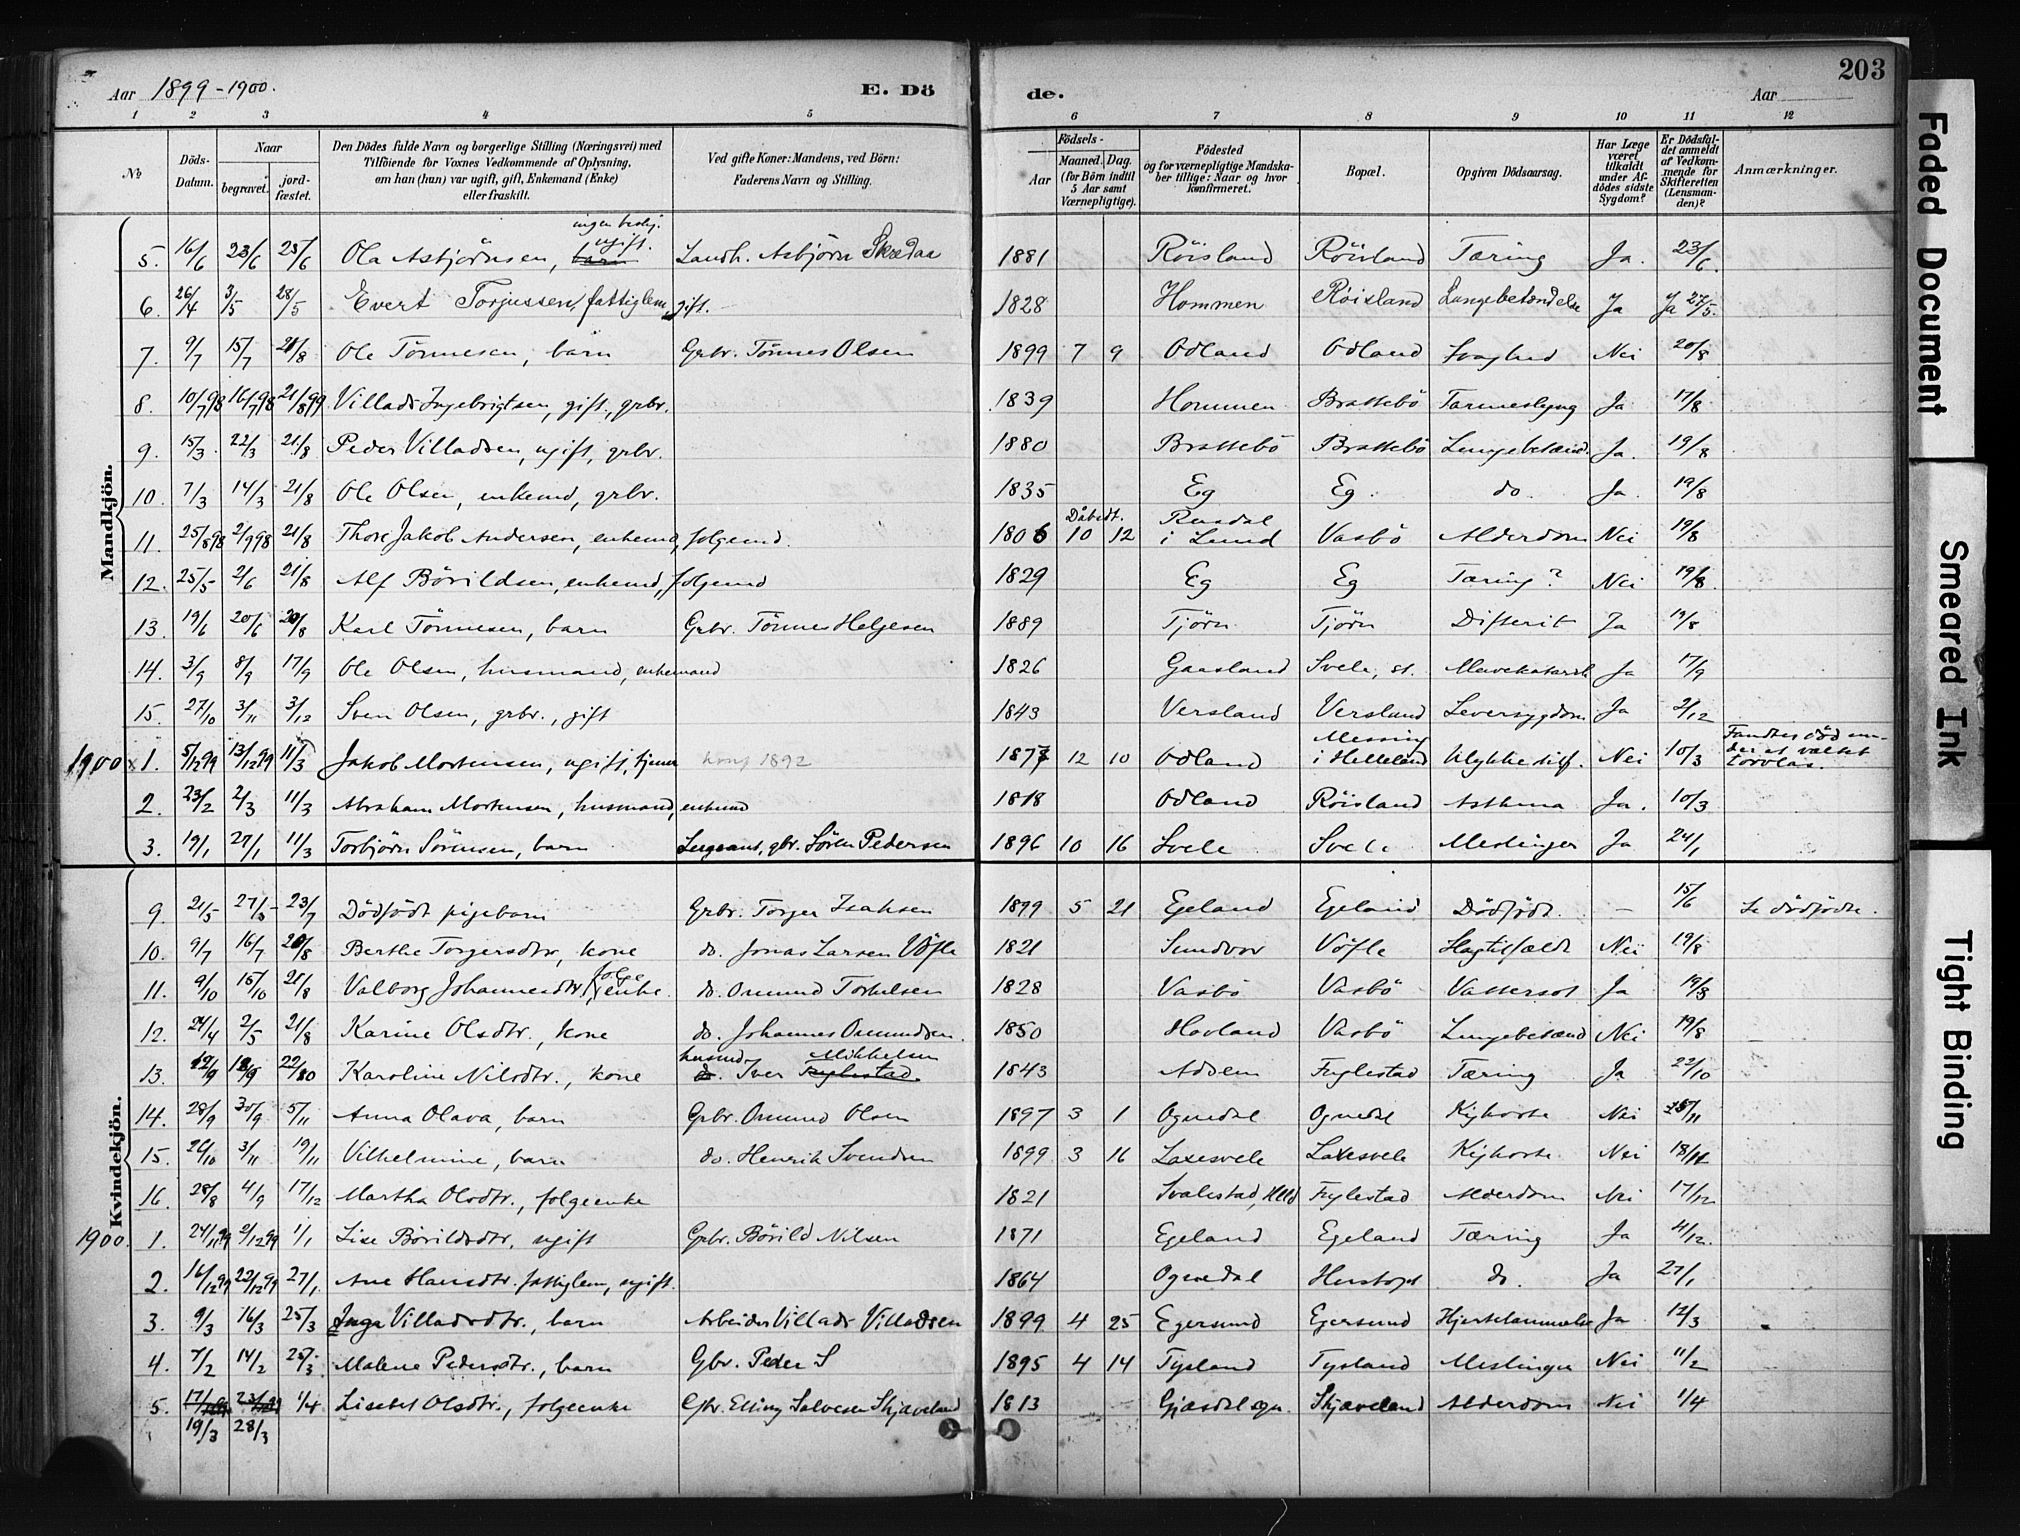 Aar 1899-1900.
E. Dö
de.
Aar
203
1 2 3 4 5 6 7 8 9 10 11 12
№
Döds-Datum.
Naar
begravet.
jordfæstet.
Den Dödes fulde Navn og borgerlige Stilling (Næringsvei) med
Tilföiende for Voxnes Vedkommende af Oplysning,
om han (hun) var ugift, gift, Enkemand (Enke)
eller fraskilt.
Ved gifte Koner: Mandens, ved Börn:
Faderens Navn og Stilling.
Födsels-
Aar
Maaned. Dag.
(for Börn indtil
5 Aar samt
Værnepligtige).
Födested
og for værnepligtige Mandskaber tillige: Naar og hvor
konfirmeret.
Bopæl.
Opgiven Dödsaarsag.
Har Læge
været
tilkaldt
under Afdödes sidste
Sygdom?
Er Dödsfaldet anmeldt
af Vedkommende for
Skifteretten
(Lensmanden)?
Anmærkninger.
Mandkjön.
5. 16/6 23/6 25/6 Ola Asbjörnsen, barn ugift. Landh. Asbjörn Skadaa 1881 Röisland Röisland Tæring Ja. 23/6.
6. 26/4 3/5 28/5 Evert Torjussen, fattiglem, gift. 1828 Hommen Röisland Lungebetændelse Ja Ja 27/5.
7. 9/7 15/7 21/8 Ole Tönnesen, barn Grbr. Tönnes Olsen 1899 7 9 Odland Odland Svaghed Nei 20/8
8. 10/7 98 16/7 98 21/8 99 Villads Ingebrigtsen, gift, grbr. 1839 Hommen Brattebö Tarmeslyng Ja 17/8
9. 15/3 22/3 21/8 Peder Villadsen, ugift, grbr. 1880 Brattebö Brattebö Lungebetænd. Ja. 19/8
10. 7/3 14/3 21/8 Ole Olsen, enkemd, grbr. 1835 Eg Eg. do. Ja. 19/8
11. 25/8 98 2/9 98 21/8 Thore Jakob Andersen, enkemd, folgemd. 1806 Dåbsdt. 10 12 Rusdal i Lund Vasbö Alderdom Nei 19/8
12. 25/5 2/6 21/8 Alf Börildsen, enkemd, folgemd 1829 Eg Eg Tæring? Nei 19/8.
13. 19/6 20/6 20/8 Karl Tönnesen, barn Grbr. Tönnes Helgesen 1889 Tjörn Tjörn Difterit Ja 19/8
14. 3/9 8/9 17/9 Ole Olsen, husmand, enkemand 1826 Gaasland Svele, st. Mavekatarrh Ja 17/9
15. 27/10 3/11 3/12 Sven Olsen, grbr., gift 1843 Versland Versland Leversygdom Ja 2/12
1900 x 1. 5/12 99 13/12 99 11/3 Jakob Mortensen, ugift, tjener konf 1892 1877 12 10 Odland Messing i Helleland Ulykkestilf. Nei 10/3 Fandtes död under et væltet torvlas.
2. 23/2 2/3 11/3 Abraham Mortensen, husmand, enkemd 1818 Odland Röisland Asthma Ja. 10/3
3. 19/1 27/1 11/3 Torbjörn Sörensen, barn Sergeant, gbr. Sören Pedersen 1896 10 16 Svele Svele Meslinger Ja 24/1
Kvindekjön.
9. 21/5 27/5 23/7 Dödfödt pigebarn Grbr. Torger Isaksen 1899 5 21 Egeland Egeland Dödfödt. — 15/6 Se dödfödte.
10. 9/7 16/7 20/8 Berthe Torgersdtr, kone do. Jonas Larsen Vöfle 1821 Sundvor Vöfle Slagtilfælde Nei 19/8
11. 9/10 15/10 21/8 Valborg Johannesdtr, folgeenke. do. Omund Torkelsen 1828 Vasbö Vasbö Vattersot Ja 19/8
12. 24/4 2/5 21/8 Karine Olsdtr., kone do. Johannes Omundsen. 1850 Hovland Vasbö Lungebetænd Nei 19/8
13. 12/9 18/9 22/10 Karoline Nilsdtr., kone husmd do. Iver Fuglestad Mikkelsen 1843 Adsem Fuglestad Tæring Ja 22/10
14. 28/9 30/9 5/11 Anna Olava, barn Grbr. Omund Olsen 1897 3 1 Ognedal Ognedal Kighoste Nei 5/11
15. 26/10 3/11 19/11 Vilhelmine, barn do. Henrik Svendsen 1899 3 16 Laxesvele Laxesvele Kighoste Nei 18/11
16. 28/8 4/9 17/12 Martha Olsdtr., folgeenke 1821 Svalestad, Hlld Fuglestad Alderdom Nei 17/12
1900. 1. 24/11 99 2/12 99 1/1 Lise Börildsdtr, ugift Grbr. Börild Nilsen 1871 Egeland Egeland Tæring Ja 4/12.
2. 16/12 99 22/12 99 27/1. Ane Hansdtr. fattiglem, ugift. 1864 Ognedal do. Ja 27/1
3. 9/3 16/3 25/3 Inga Villadsdtr., barn Arbeider Villads Villadsen 1899 4 25 Egersund Egersund Hjertelammelse Ja 12/3
4. 7/2 14/2 25/3. Malene Pedersdtr., barn Gbr. Peder S 1895 4 14 Tysland Tysland Meslinger Nei 11/2
5. 17/ 23/ 1/4 Lisebet Olsdtr., folgeenke Gbr. Elling Salvesen Skjæveland 1813 Gjæsdal sgn. Skjæveland Alderdom Nei 1/4
19/3 28/3
Faded Document
Smeared Ink
Tight Binding